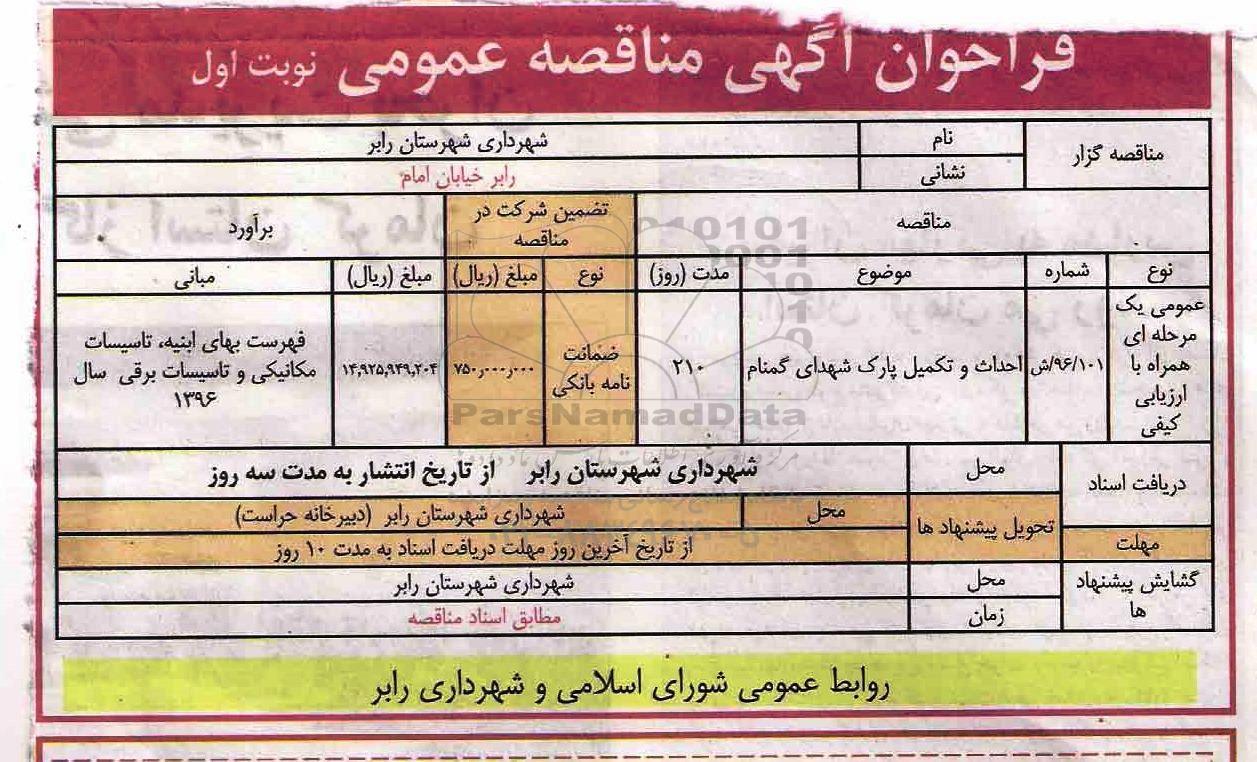 فراخوان آگهی مناقصه عمومی نوبت اول
مناقصه گزار
نام
شهرداری شهرستان رابر
نشانی
رابر خیابان امام
مناقصه
تضمین شرکت در
مناقصه
برآورد
نوع
شماره
موضوع
مدت (روز)
نوع
مبلغ (ریال)
مبلغ (ریال)
مبانی
عمومی یک
مرحله ای
همراه با
ارزیابی
کیفی
۹۶/۱۰۱/ش
احداث و تکمیل پارک شهدای گمنام
۲۱۰
ضمانت
نامه بانکی
۷۵۰٫۰۰۰٫۰۰۰
۱۴,۹۲۵,۹۴۹,۲۰۴
فهرست بهای ابنیه، تاسیسات
مکانیکی و تاسیسات برقی سال
۱۳۹۶
دریافت اسناد
محل
شهرداری شهرستان رابر از تاریخ انتشار به مدت سه روز
تحویل پیشنهاد ها
محل
شهرداری شهرستان رابر (دبیرخانه حراست)
مهلت
از تاریخ آخرین روز مهلت دریافت اسناد به مدت ۱۰ روز
گشایش پیشنهاد
ها
محل
شهرداری شهرستان رابر
زمان
مطابق اسناد مناقصه
روابط عمومی شورای اسلامی و شهرداری رابر
ParsNamadData